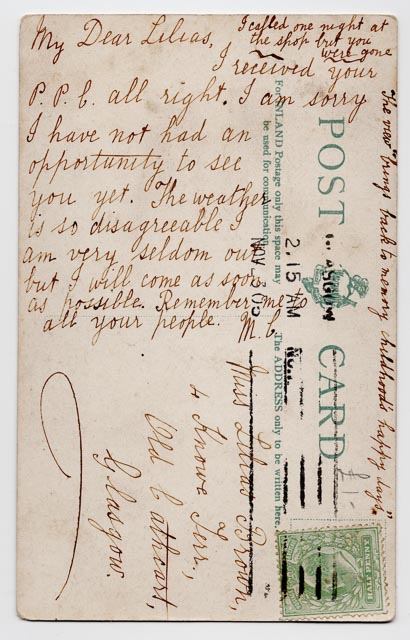 My Dear Lilias,
I called one night at
the shop but you
were gone
I received your
P. P. C. all right. I am sorry
I have not had an
opportunity to see
you yet. The weather
is so disagreeable I
am very seldom out
but I will come as soon
as possible. Remember me to
all your people. M. C.
"The view" brings back to memory childhood's happy days"
POST CARD
For INLAND Postage only this space may
be used for communication.
The ADDRESS only to be written here.
GLASGOW
2.15 AM
NOV 3 05
Miss Lilias Brown,
4 Knowe Terr,
Old Cathcart,
Glasgow.
HALF PENNY